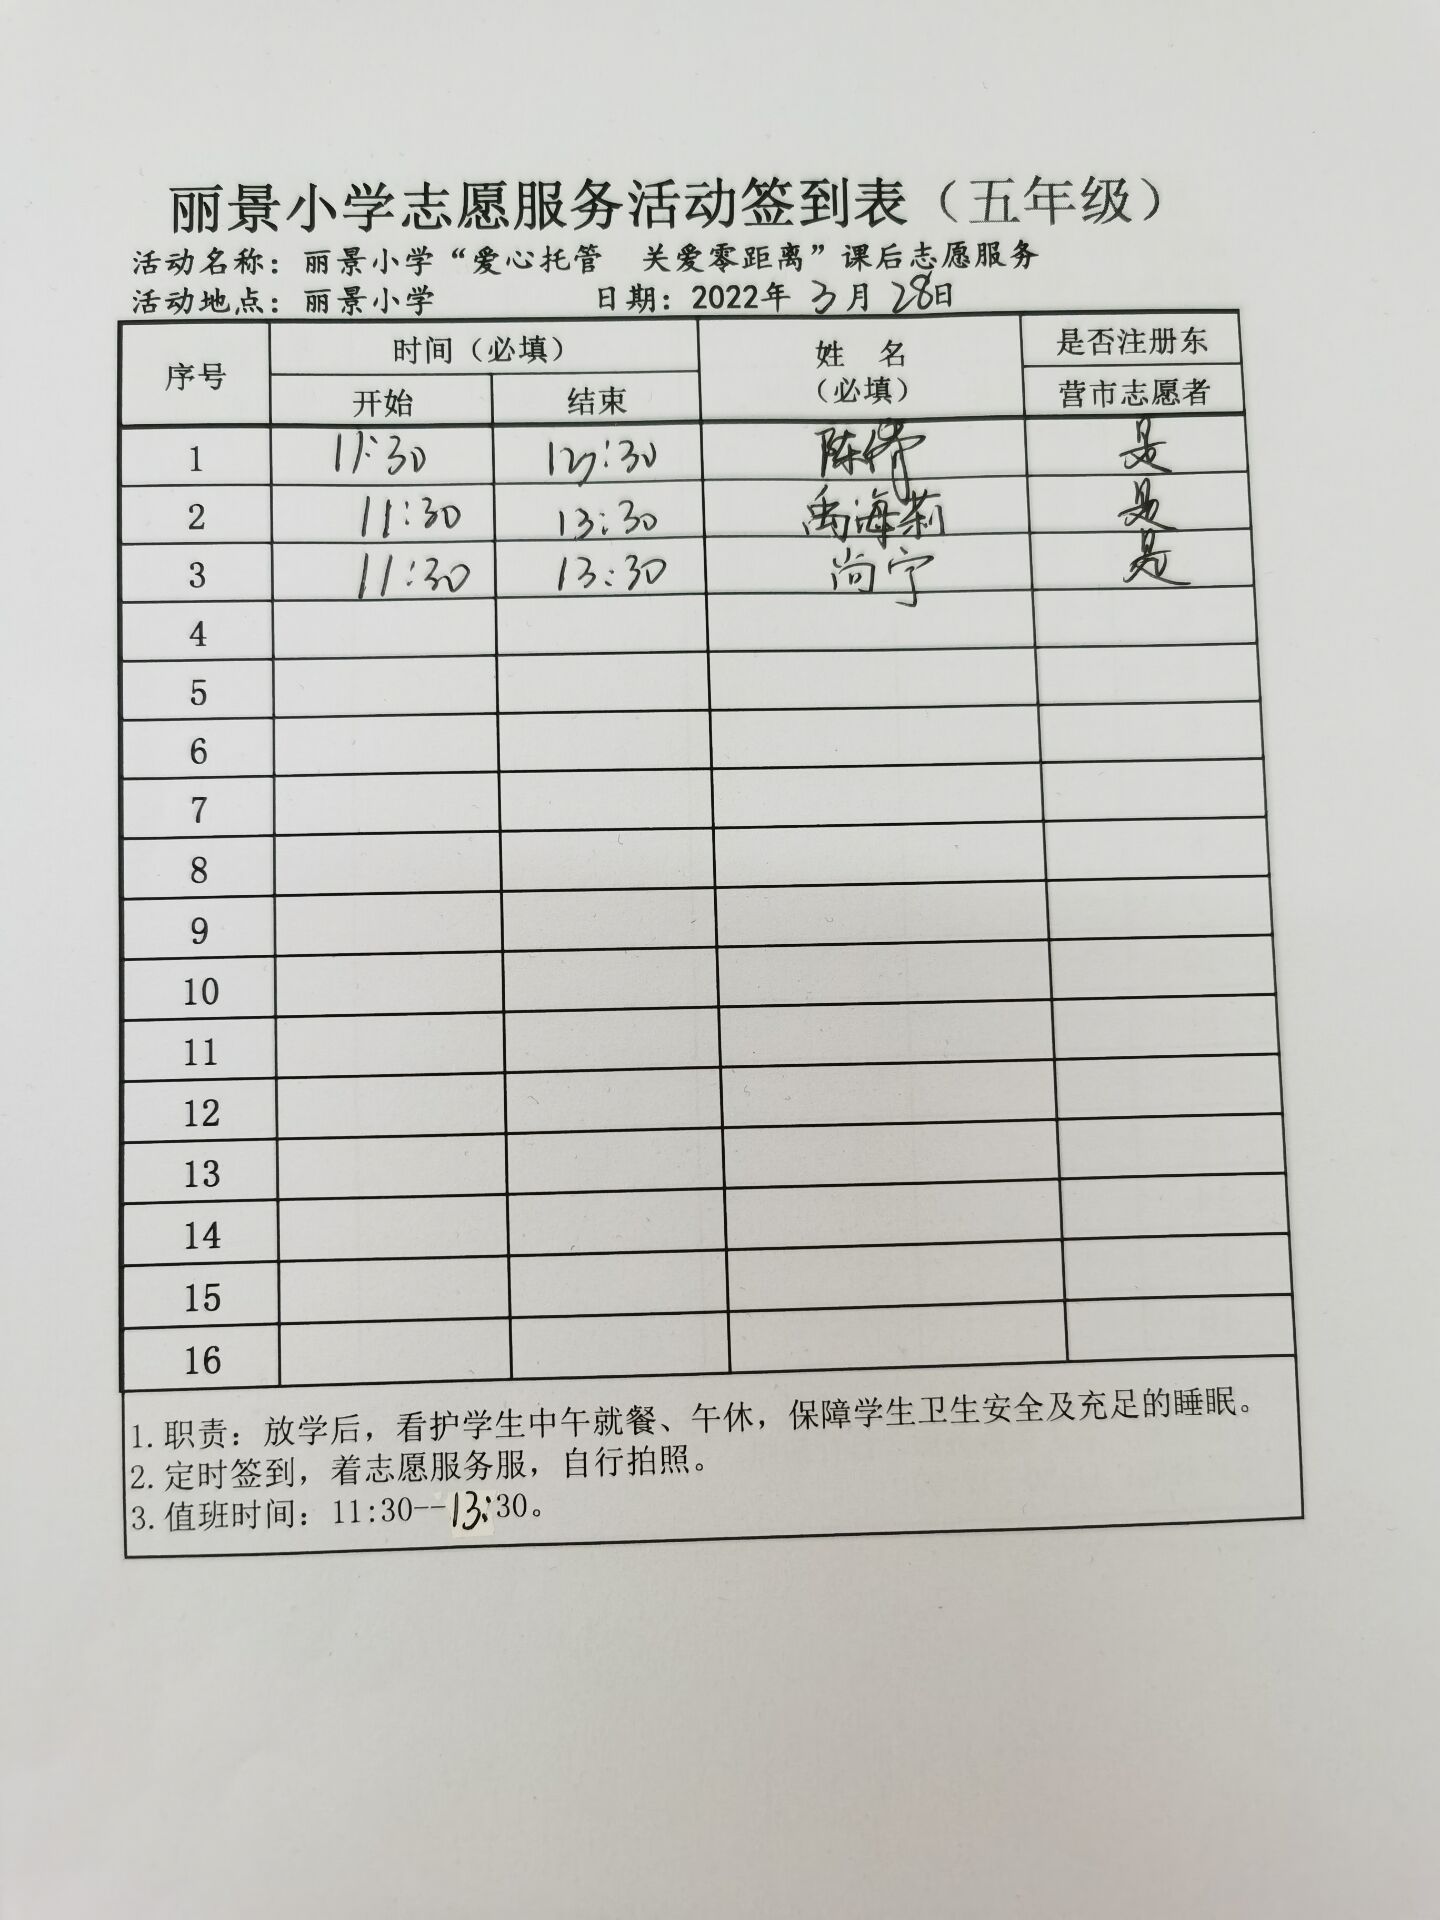 丽景小学志愿服务活动签到表（五年级）
活动名称：丽景小学“爱心托管 关爱零距离”课后志愿服务
活动地点：丽景小学 日期：2022年 3月 28日
序号 时间（必填） 姓 名（必填） 是否注册东营市志愿者
开始 结束
1 11:30 陈 是
2 11:30 13:30 禹海莉 是
3 11:30 13:30 尚宁 是
4
5
6
7
8
9
10
11
12
13
14
15
16
1.职责：放学后，看护学生中午就餐、午休，保障学生卫生安全及充足的睡眠。
2.定时签到，着志愿服务服，自行拍照。
3.值班时间：11:30--13:30。